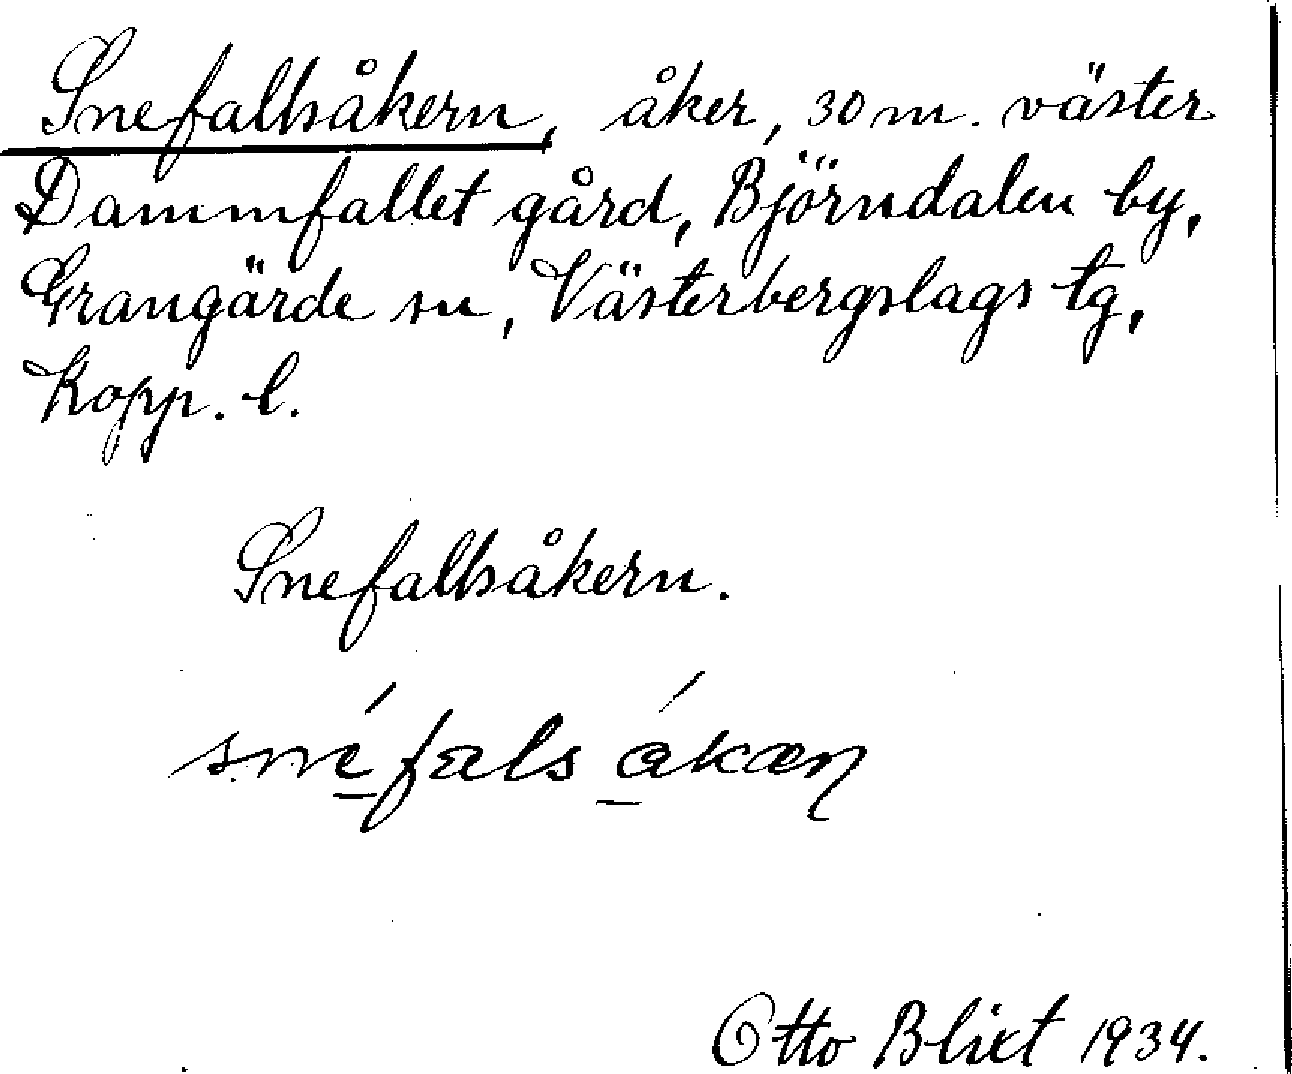 Snefallsåkern, åker, 30 m. väster
Dammfallet gård, Björndalen by,
Grangärde sn, Västerbergslags tg,
Kopp. l.
Snefallsåkern.
snéfals ákæṇ
Otto Blixt 1934.